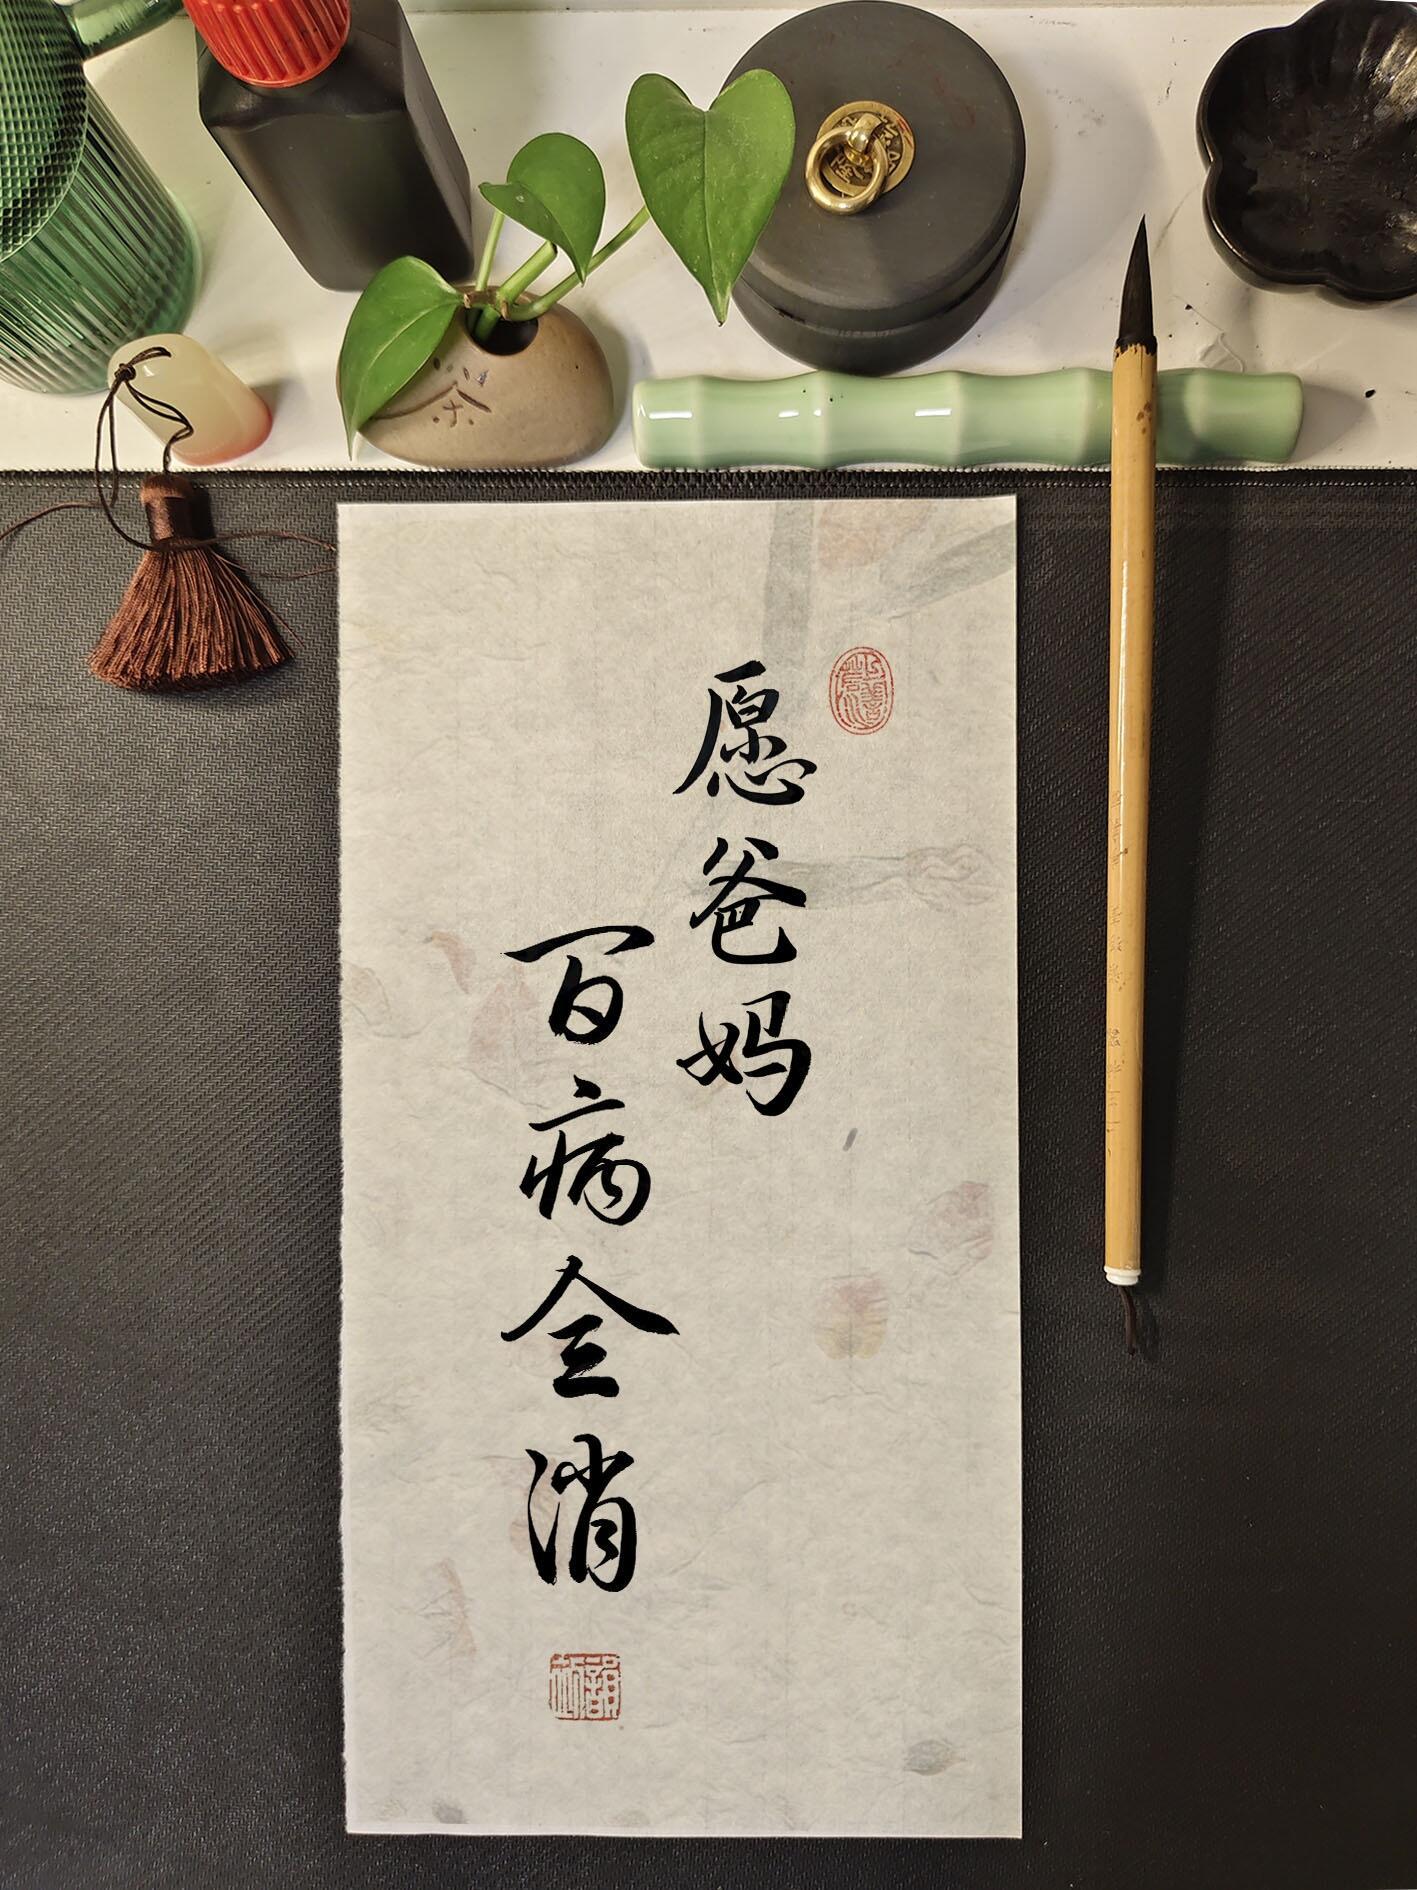 愿爸妈
百病全消